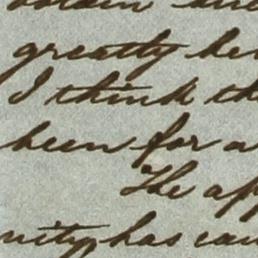 greatly he
I think th
been for a
The ap
nity has cau